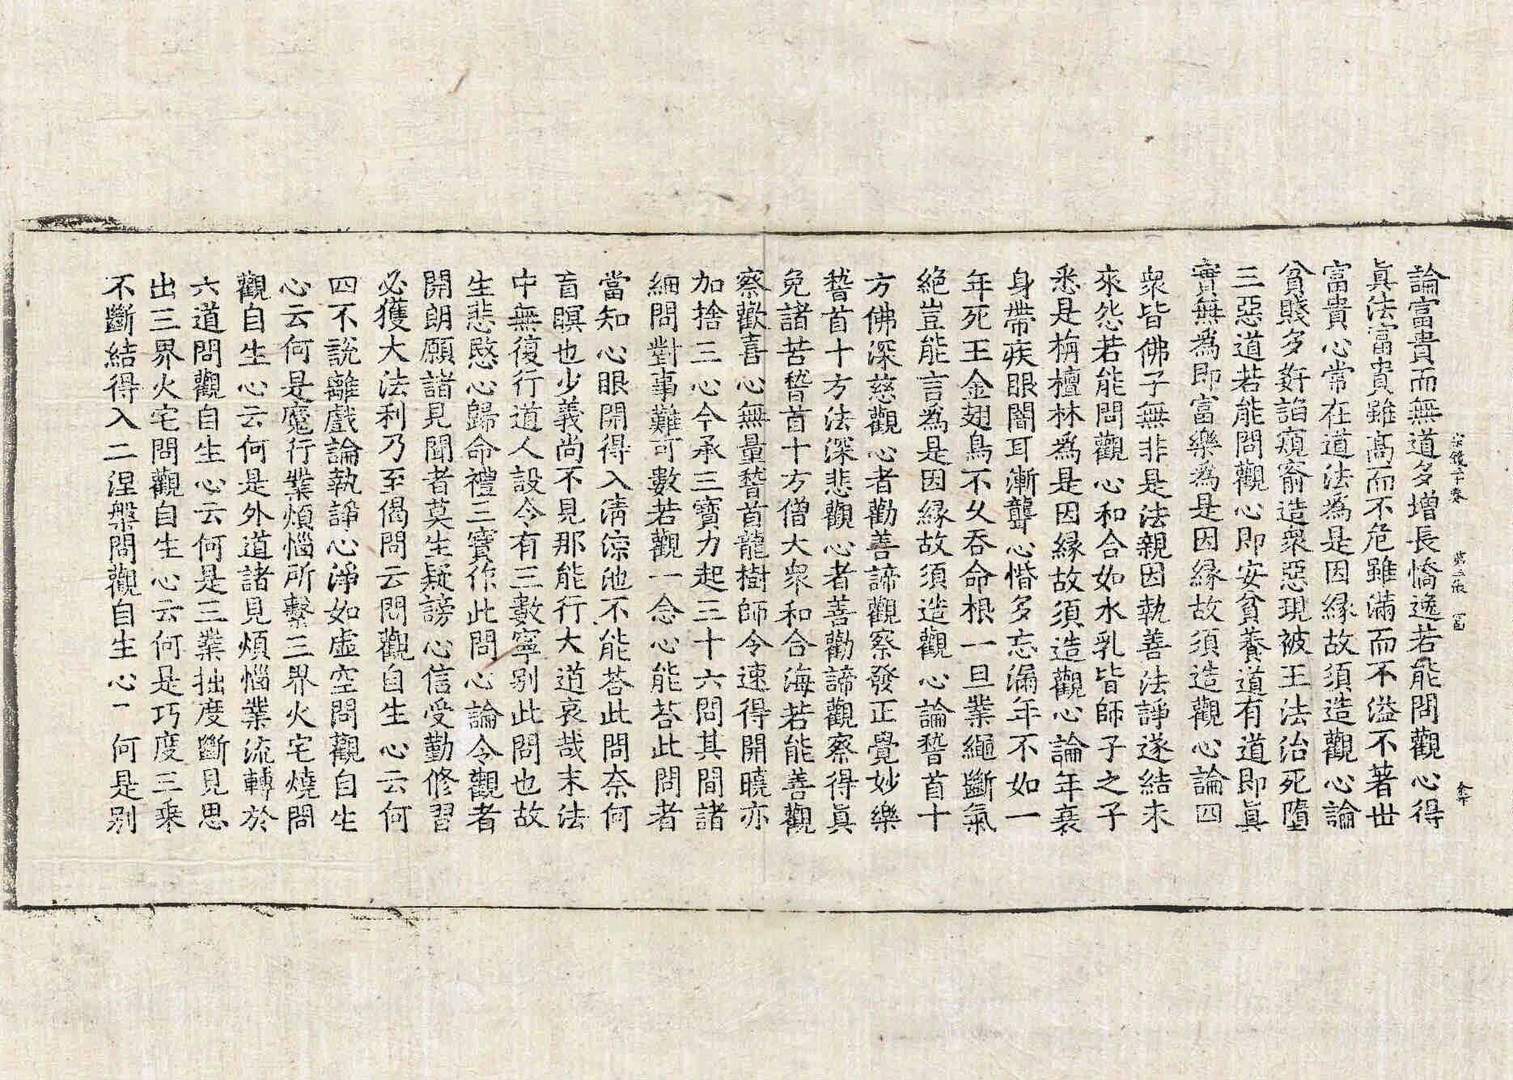 宗鏡三十卷 富
論富貴而無道多增長憍逸若能問觀心得
真法富貴雖髙而不危雖滿而不溢不著世
富貴心常在道法為是因緣故須造觀心論
貧賤多姧諂窺窬造衆惡現被王法治死墮
三惡道若能問觀心即安貧養道有道即真
實無為即富樂為是因緣故須造觀心論四
衆皆佛子無非是法親因執善法諍遂結未
來怨若能問觀心和合如水乳皆師子之子
悉是栴檀林為是因緣故須造觀心論年衰
身帶疾眼闇耳漸聾心惛多忘漏年不如一
年死王金翅鳥不久吞命根一旦業繩斷氣
絕豈能言為是因緣故須造觀心論稽首十
方佛深慈觀心者勸善諦觀察發正覺妙樂
稽首十方法深悲觀心者善勸諦觀察得真
免諸苦稽首十方僧大衆和合海若能善觀
察歡喜心無量稽首龍樹師令速得開曉亦
加捨三心今承三寶力起三十六問其間諸
細問對事難可數若觀一念心能荅此問者
當知心眼開得入清涼池不能荅此問奈何
盲瞑也少義尚不見那能行大道哀哉末法
中無復行道人設令有三數寧別此問也故
生悲愍心歸命禮三寶作此問心論令觀者
開朗願諸見聞者莫生疑謗心信受勤修習
必獲大法利乃至偈問云問觀自生心云何
四不說離戲論執諍心淨如虛空問觀自生
心云何是魔行業煩惱所繫三界火宅燒問
觀自生心云何是外道諸見煩惱業流轉於
六道問觀自生心云何是三業拙度斷見思
出三界火宅問觀自生心云何是巧度三乘
不斷結得入二涅槃問觀自生心一何是別